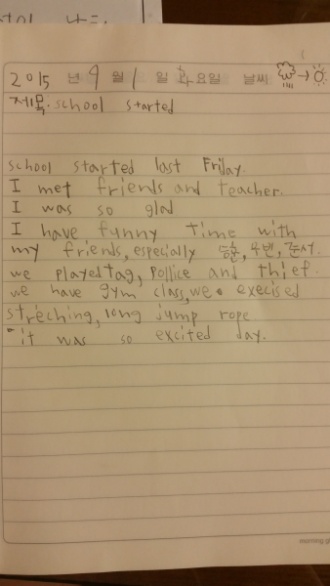 2015 년 9 월 1 일 화요일 날씨
제목.school started
school started last Friday.
I met friends and teacher.
I was so glad
I have funny time with
my friends, especially 동훈, 수빈, 준서.
we played tag, pollice and thief.
we have gym class, we execised
streching, long jump rope
it was so excited day.